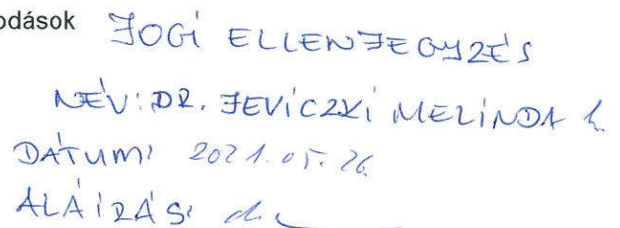 odások
JOGI ELLENJEGYZÉS
NÉV: DR. JEVICZKI MELINDA
DÁTUM: 2021.05.26
ALÁÍRÁS: